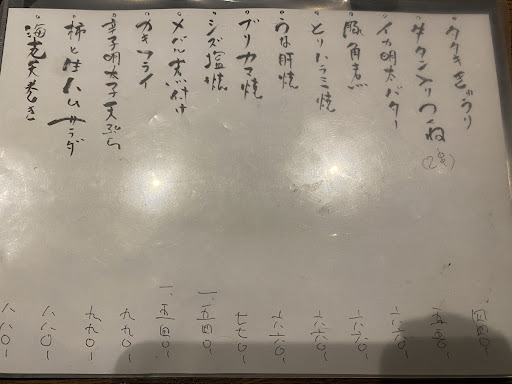 タタキきゅうり 四四〇-
牛タン入りつくね(2本) 五五〇-
イカ明太バター 六六〇-
豚角煮 六六〇-
とりハラミ焼 六六〇-
うな肝焼 六六〇-
ブリカマ焼 七七〇-
シズ塩焼 一、五四〇-
メバル煮付け 一、五四〇-
カキフライ 九九〇-
辛子明太子天ぷら 九九〇-
柿と生ハムサラダ 八八〇-
海老天巻き 八八〇-